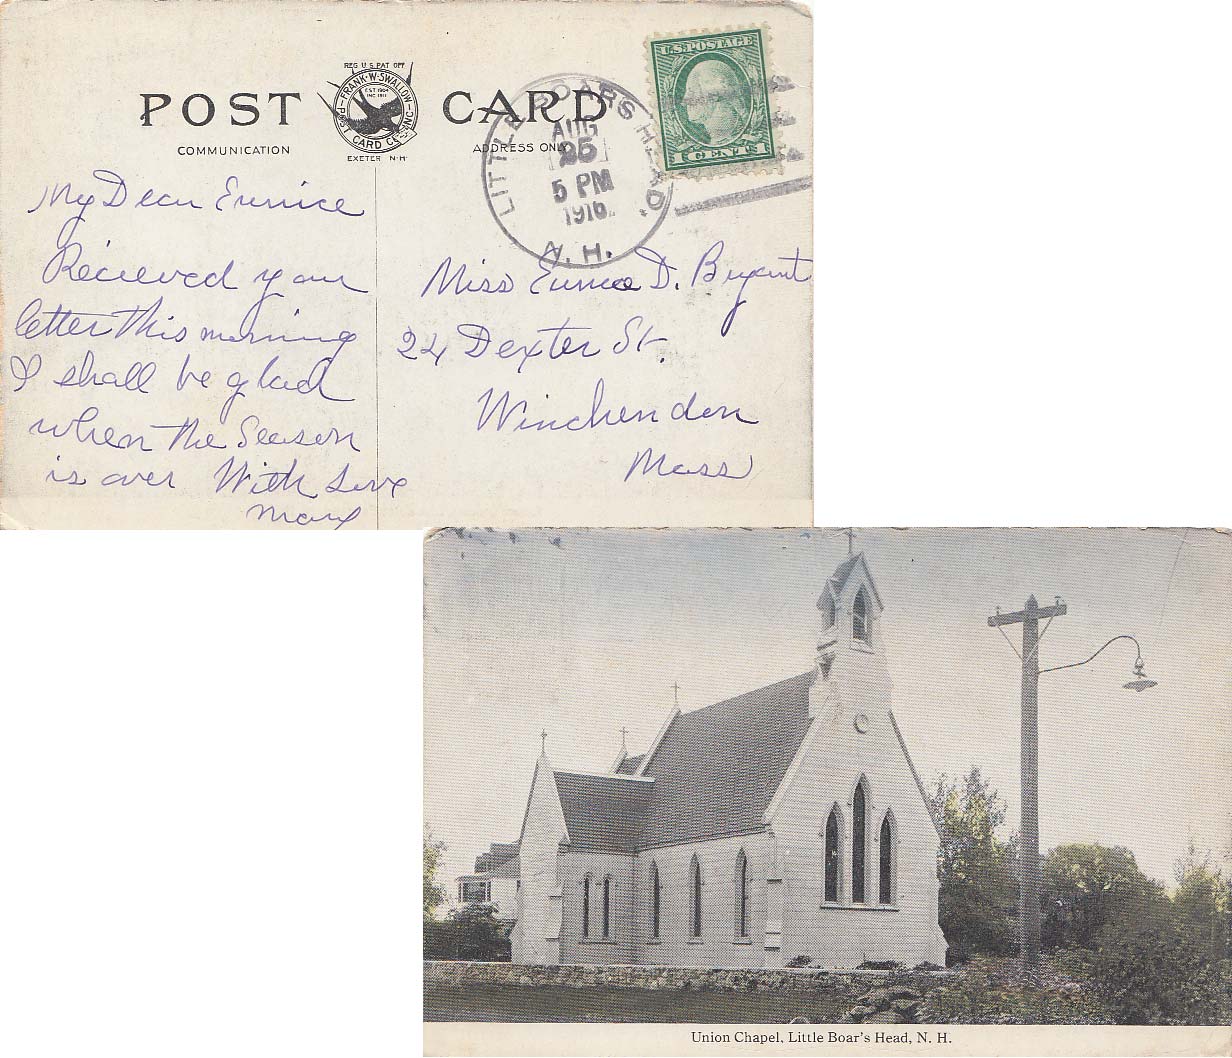 REG U S PAT OFF
FRANK·W·SWALLOW
EST 1904
INC 1911
POST CARD CO INC
EXETER N·H·
POST CARD
COMMUNICATION
ADDRESS ONLY
LITTLE BOARS HEAD.
AUG
25
5 PM
1916
N. H.
U.S. POSTAGE
1 CENT 1
My Dear Eunice
Recieved your
letter this morning
I shall be glad
when the Season
is over With Love
Mary
Miss Eunice D. Bryant
24 Dexter St.
Winchendon
Mass
Union Chapel, Little Boar's Head, N. H.